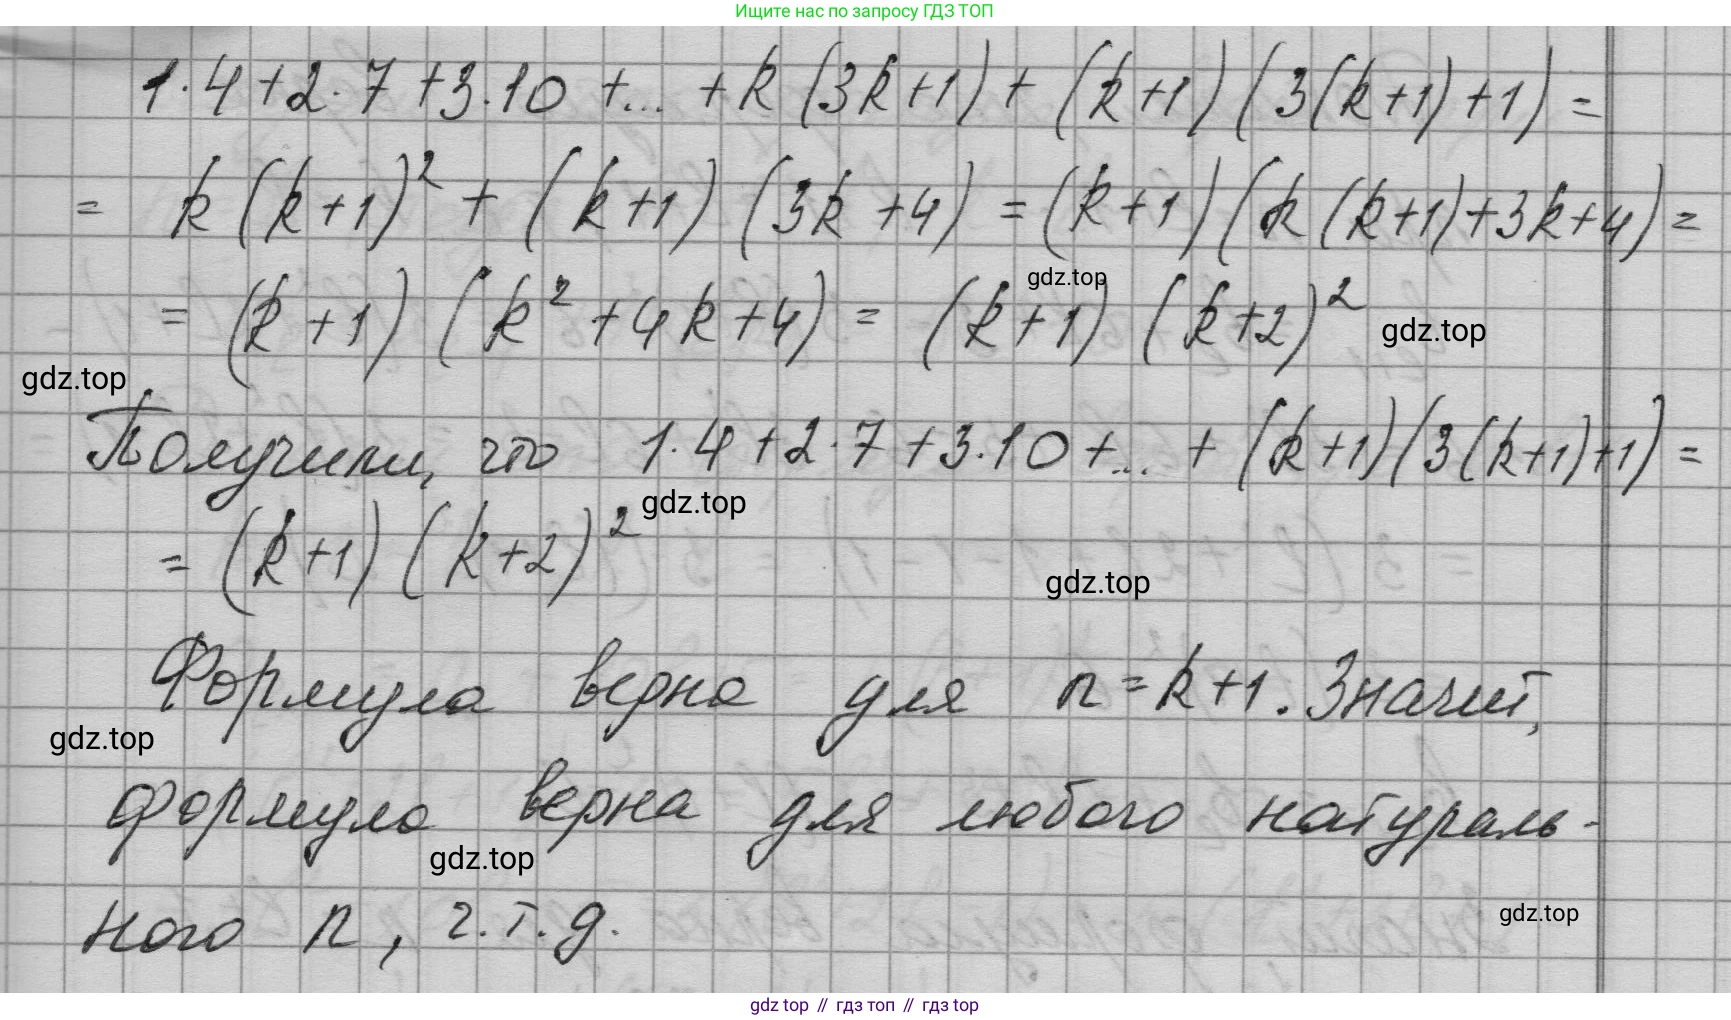 Ищите нас по запросу ГДЗ ТОП
1·4+2·7+3·10+...+k(3k+1)+(k+1)(3(k+1)+1)=
= k(k+1)²+(k+1)(3k+4)=(k+1)(k(k+1)+3k+4)=
gdz.top
= (k+1)(k²+4k+4)=(k+1)(k+2)²
gdz.top
gdz.top
Получили, что 1·4+2·7+3·10+...+(k+1)(3(k+1)+1)=
gdz.top
= (k+1)(k+2)²
gdz.top
Формула верна для n=k+1. Значит,
gdz.top
формула верна для любого натураль-
gdz.top
ного n, ч.т.д.
gdz.top
gdz top // гдз топ // gdz top